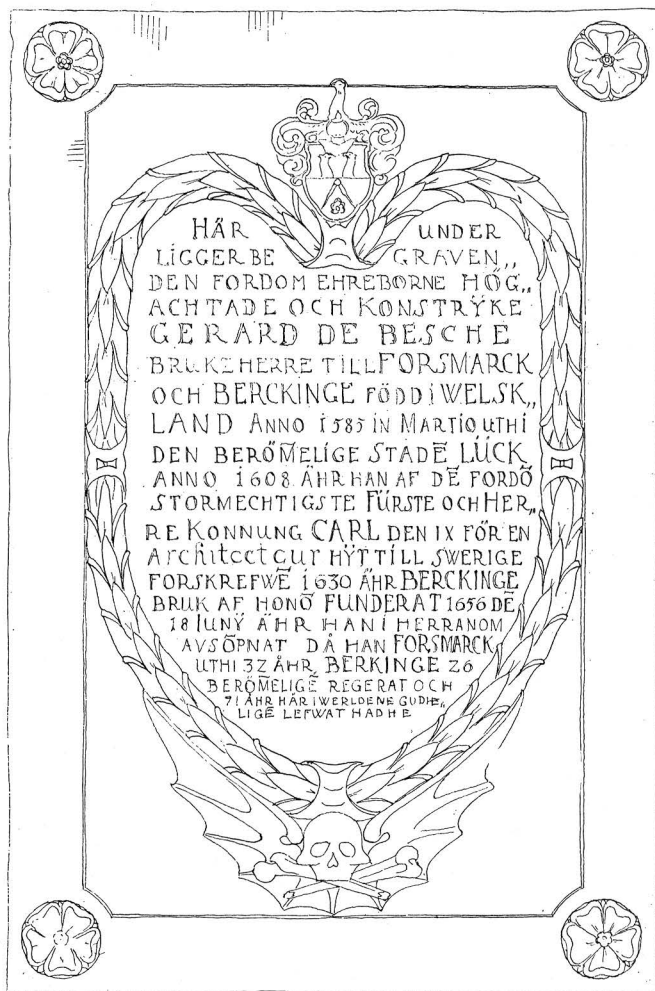 HÄR UNDER
LIGGER BE GRAVEN,,
DEN FORDOM EHREBORNE HÖG,,
ACHTADE OCH KONSTRŸKE
GERARD DE BESCHE
BRUKZHERRE TILL FORSMARCK
OCH BERCKINGE FÖDD I WELSK,,
LAND ANNO 1585 IN MARTIO UTHI
DEN BERÖM̄ELIGE STADĒ LÜCK
ANNO 1608 ÄHR HAN AF DĒ FORDŌ
STORMECHTIGSTE FÜRSTE OCH HER,,
RE KONNUNG CARL DEN IX FÖR EN
Architectcur HŸT TILL SWERIGE
FORSKREFWĒ 1630 ÄHR BERCKINGE
BRUK AF HONŌ FUNDERAT 1656 DĒ
18 JUNŸ ÄHR HAN I HERRANOM
AVSŌPNAT DÅ HAN FORSMARCK
UTHI 32 ÅHR BERKINGE 26
BERÖM̄ELIGĒ REGERAT OCH
71 ÅHR HÄR I WERLDENE GUDHE,,
LIGĒ LEFWAT HADHE